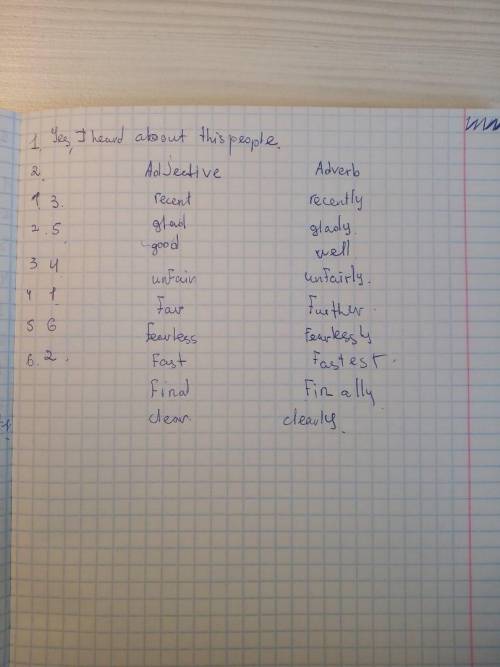 1. Yes, I heard about this people.
2. Adjective Adverb
1 3. recent recently
2. 5 glad glady
good well
3 4 unfair unfairly.
4 1 Far Further.
5 6 Fearless Fearlessly
6. 2. Fast Fastest.
Final Finally
clear clearly.